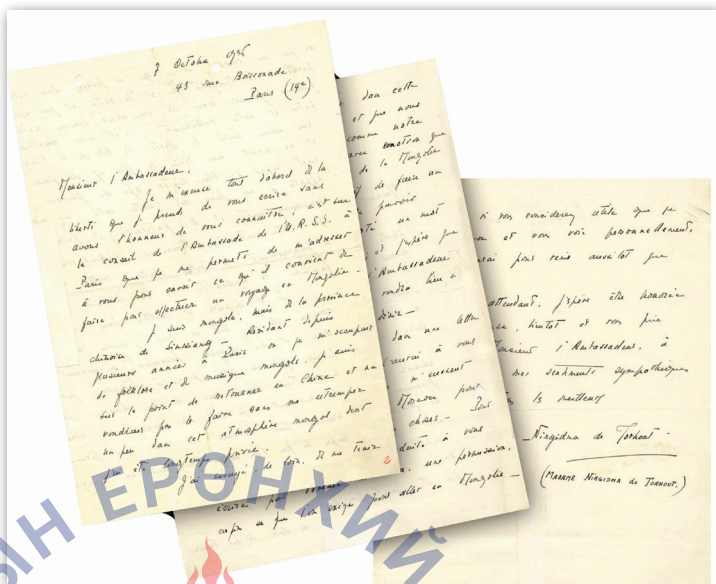 7 Octobre 1936
43 rue Boissonade
Paris (14e)
Monsieur l'Ambassadeur,
Je m'excuse tout d'abord de la
liberté que je prends de vous écrire sans
avoir l'honneur de vous connaître, c'est sur
le conseil de l'Ambassade de l'U.R.S.S. à
Paris que je me permets de m'adresser
à vous pour savoir ce qu'il convient de
faire pour effectuer un voyage en Mongolie.
Je suis mongole, mais de la province
chinoise de Sinkiang. Résidant depuis
plusieurs années à Paris où je m'occupais
de folklore et de musique mongole, je suis
sur le point de retourner en Chine et ne
voudrais pas le faire sans me retremper
un peu dans cet atmosphère mongol dont
j'ai été longtemps privée.
J'ai essayé, de loin, de me tenir
2
dans cette
et que nous
comme notre
avec émotion que
de la Mongolie
de faire un
pouvoir
un mot
et j'espère que
l'Ambassadeur
voudra bien
dans une lettre
à vous
Moscou pour
choses - Pour
à vous
une permission,
enfin ce que l'on exige pour aller en Mongolie -
si vous considérez utile que je
et vous voie personnellement,
pour venir aussitôt que
attendant, j'espère être honorée
bientôt et vous prie
Monsieur l'Ambassadeur, à
mes sentiments sympathiques
les meilleurs
Nirgidma de Torhout -
(MADAME NIRGIDMA de TORHOUT.)
ЫН ЕРӨНХИЙ